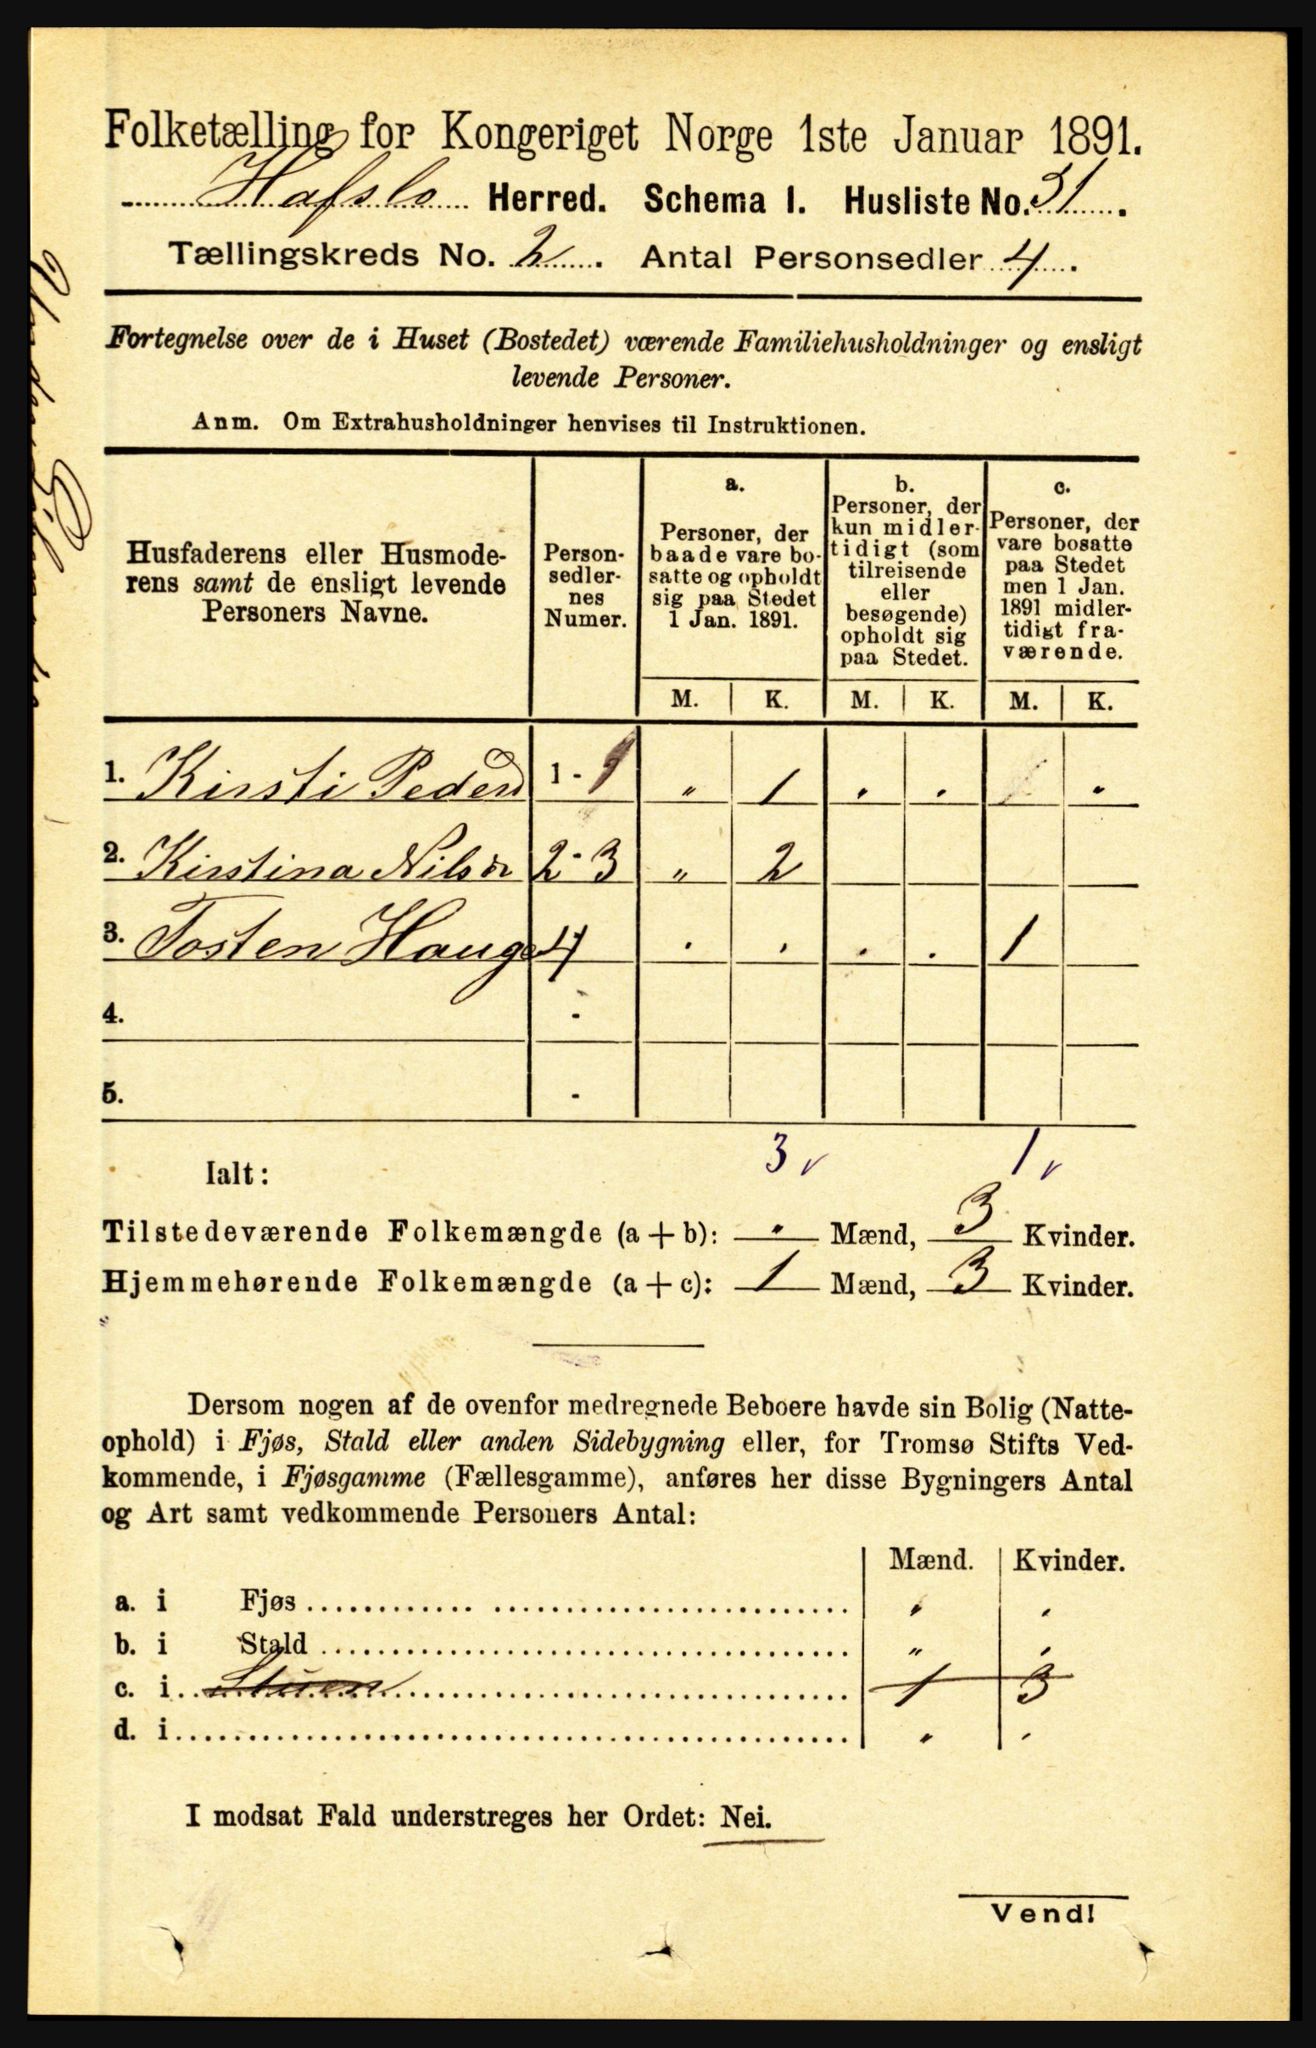 Folketælling for Kongeriget Norge 1ste Januar 1891.
Hafslo Herred. Schema I. Husliste No. 31.
Tællingskreds No. 2. Antal Personsedler 4.
Fortegnelse over de i Huset (Bostedet) værende Familiehusholdninger og ensligt
levende Personer.
Anm. Om Extrahusholdninger henvises til Instruktionen.
Husfaderens eller Husmode-
rens samt de ensligt levende
Personers Navne.
Person-
sedler-
nes
Numer.
a.
Personer, der
baade vare bo-
satte og opholdt
sig paa Stedet
1 Jan. 1891.
b.
Personer, der
kun midler-
tidigt (som
tilreisende
eller
besøgende)
opholdt sig
paa Stedet.
c.
Personer, der
vare bosatte
paa Stedet
men 1 Jan.
1891 midler-
tidigt fra-
værende.
M. K. M. K. M. K.
1. Kirsti Pedersd 1 - 1 „ 1 . . .
2. Kirstina Nilsdr 2 - 3 „ 2
3. Tosten Hauge 4 . . . . 1
4. -
5. -
Ialt: 3 v 1 v
Tilstedeværende Folkemængde (a + b): . Mænd, 3 Kvinder.
Hjemmehørende Folkemængde (a + c): 1 Mænd, 3 Kvinder.
Dersom nogen af de ovenfor medregnede Beboere havde sin Bolig (Natte-
ophold) i Fjøs, Stald eller anden Sidebygning eller, for Tromsø Stifts Ved-
kommende, i Fjøsgamme (Fællesgamme), anføres her disse Bygningers Antal
og Art samt vedkommende Personers Antal:
Mænd. Kvinder.
a. i Fjøs „ .
b. i Stald „ .
c. i Stuen 1 3
d. i „ .
I modsat Fald understreges her Ordet: Nei.
Vend!